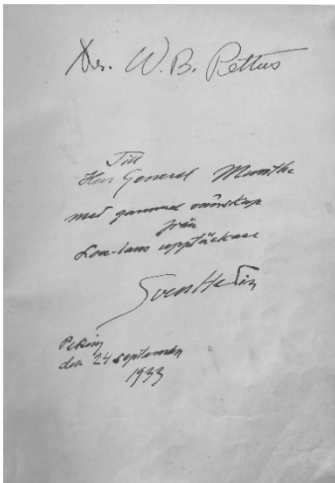 Dr. W. B. Pettus
Till
Herr General Munthe
med gammal vänskap
från
Lou-lans upptäckare
Sven Hedin
Peking
den 24 september
1933